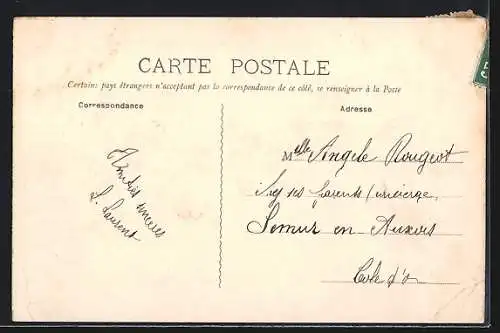 CARTE POSTALE
Certains pays étrangers n'acceptant pas la correspondance de ce côté, se renseigner à la Poste
Correspondance
Adresse
Amitiés sincères
L. Laurent
Melle Angèle Rougeot
ses parents
Semur en Auxois
Côte d'or